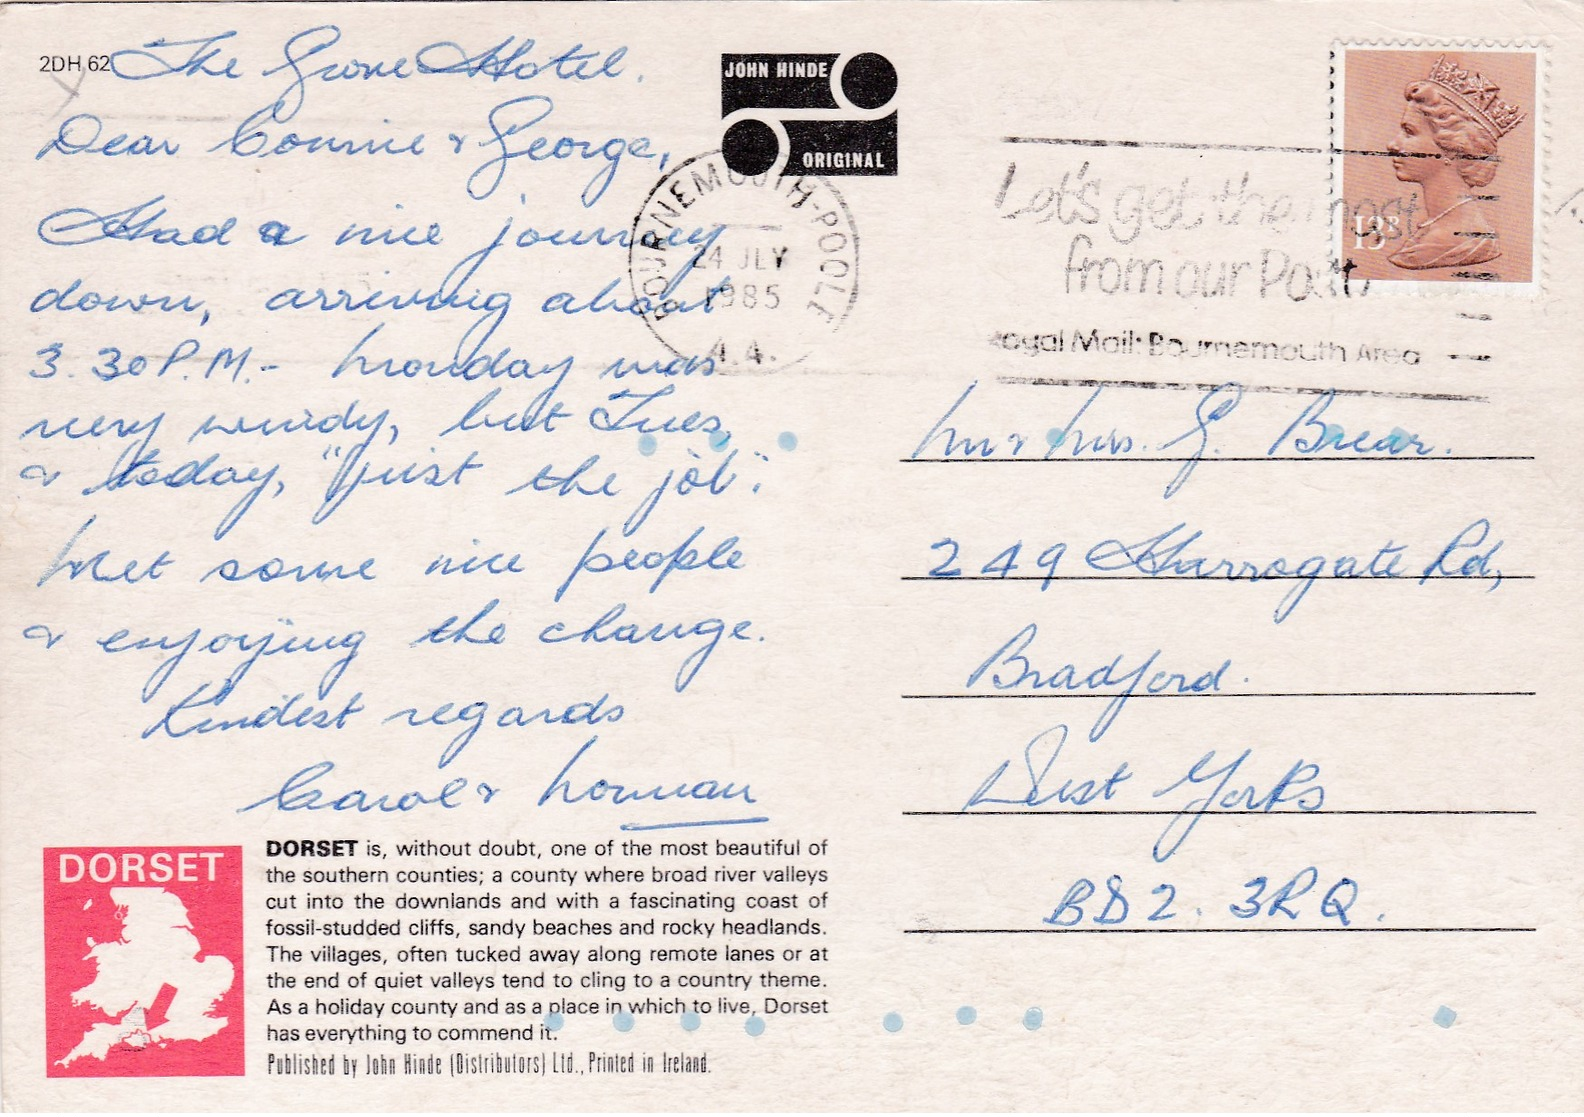 2DH 62
The Grove Hotel.
Dear Connie & George,
Had a nice journey
down, arriving about
3.30 P.M. - Monday was
very windy, but Tues,
& today, "just the job".
Met some nice people
& enjoying the change.
Kindest regards
Carol & Norman
JOHN HINDE
ORIGINAL
BOURNEMOUTH-POOLE
24 JLY
1985
Let's get the most
from our Post
Royal Mail: Bournemouth Area
13P
Mr & Mrs. G. Brear.
249 Harrogate Rd,
Bradford.
West Yorks
BD2. 3RQ.
DORSET
DORSET is, without doubt, one of the most beautiful of
the southern counties; a county where broad river valleys
cut into the downlands and with a fascinating coast of
fossil-studded cliffs, sandy beaches and rocky headlands.
The villages, often tucked away along remote lanes or at
the end of quiet valleys tend to cling to a country theme.
As a holiday county and as a place in which to live, Dorset
has everything to commend it.
Published by John Hinde (Distributors) Ltd., Printed in Ireland.